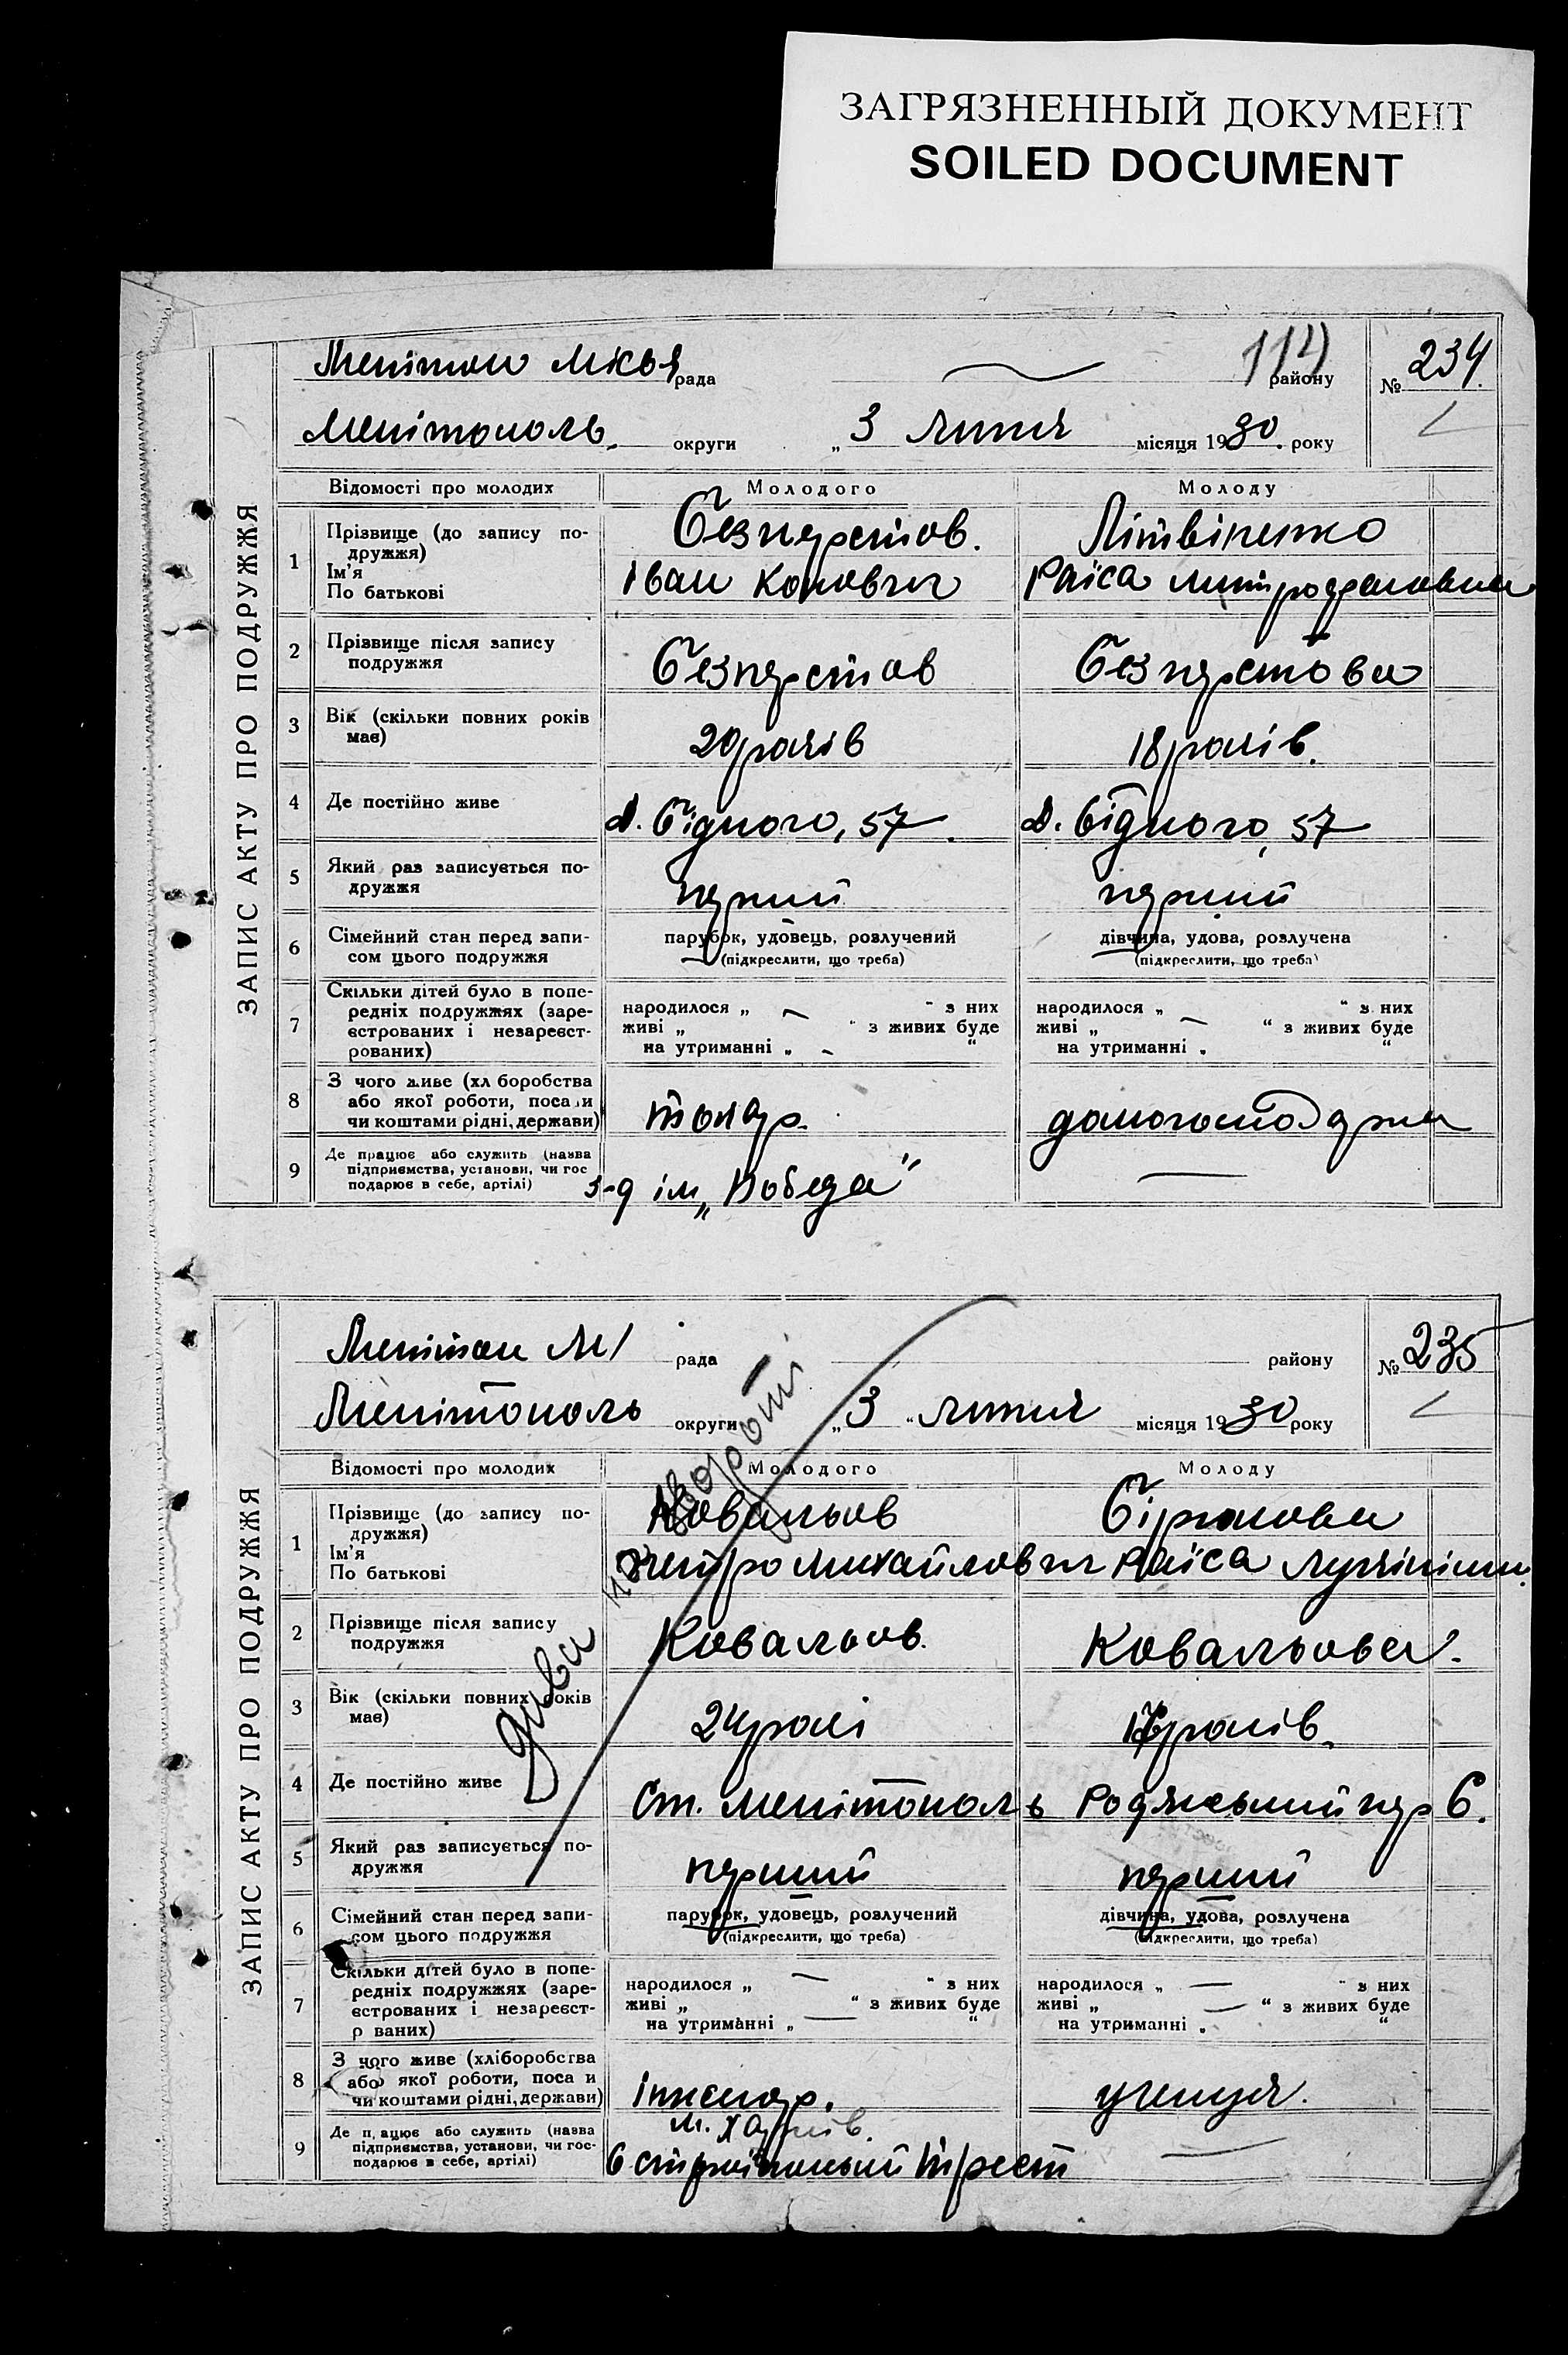 ЗАГРЯЗНЕННЫЙ ДОКУМЕНТ
SOILED DOCUMENT
ЗАПИС АКТУ ПРО ПОДРУЖЖЯ
рада району № 234
Мелітополь округи „3 липня місяця 1930 року
Відомості про молодих Молодого Молоду
1 Прізвище (до запису по-
дружжя)
Ім'я
По батькові
Безперстов. Літвіненко
Іван Раїса
2 Прізвище після запису
подружжя
Безперстов Безперстова
3 Вік (скільки повних років
має)
20 років 18 років.
4 Де постійно живе Д. Бідного, 57 Д. Бідного, 57
5 Який раз записується по-
дружжя
перший
6 Сімейний стан перед запи-
сом цього подружжя
парубок, удовець, розлучений дівчина, удова, розлучена
(підкреслити, що треба) (підкреслити, що треба)
7 Скільки дітей було в попе-
редніх подружжях (заре-
єстрованих і незареєст-
рованих)
народилося „ — “ з них народилося „ “ з них
живі „ “ з живих буде живі „ — “ з живих буде
на утриманні „ - “ на утриманні „ “
8 З чого живе (хл боробства
або якої роботи, поса и
чи коштами рідні, держави)
токар.
9 Де працює або служить (назва
підприємства, установи, чи гос
подарює в себе, артілі)
з-д ім „Победа" —
ЗАПИС АКТУ ПРО ПОДРУЖЖЯ
рада району № 235
Мелітополь округи „3 “ липня місяця 1930 року
Відомості про молодих Молодого Молоду
1 Прізвище (до запису по-
дружжя)
Ім'я
По батькові
Ковальов Бірюкова
Михайлович Раїса
2 Прізвище після запису
подружжя
Ковальов. Ковальова.
3 Вік (скільки повних років
має)
24 років.
4 Де постійно живе Ст. Мелітополь 6.
5 Який раз записується по-
дружжя
перший перший
6 Сімейний стан перед запи-
сом цього подружжя
парубок, удовець, розлучений дівчина, удова, розлучена
(підкреслити, що треба) (підкреслити, що треба)
7 Скільки дітей було в попе-
редніх подружжях (заре-
єстрованих і незареєст-
р ваних)
народилося „ — “ з них народилося „ — “ з них
живі „ “ з живих буде живі „ — “ з живих буде
на утриманні „ — “ на утриманні „ “
8 З чого живе (хліборобства
або якої роботи, поса и
чи коштами рідні, держави)
інженер. учениця.
9 Де п ацює або служить (назва
підприємства, установи, чи гос-
подарює в себе, артілі)
м. Харків.
трест —